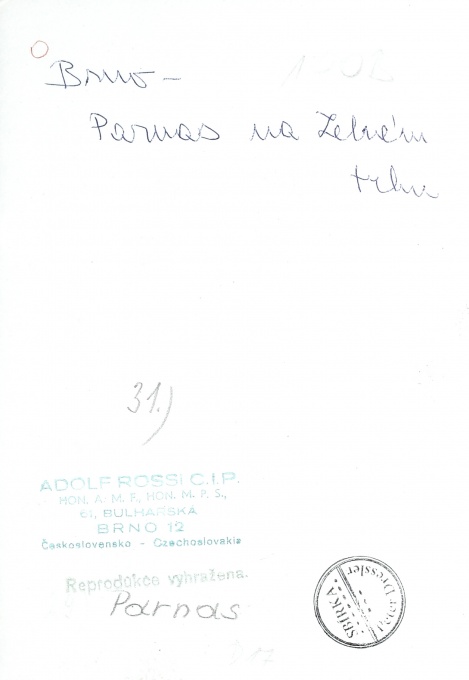 Brno -
Parnas na Zelném
trhu
31.)
ADOLF ROSSI C.I.P.
HON. A. M. F., HON. M. P. S.,
61, BULHARSKÁ
BRNO 12
Československo - Czechoslovakia
Reprodukce vyhražena.
Parnas
SBÍRKA
Dressler